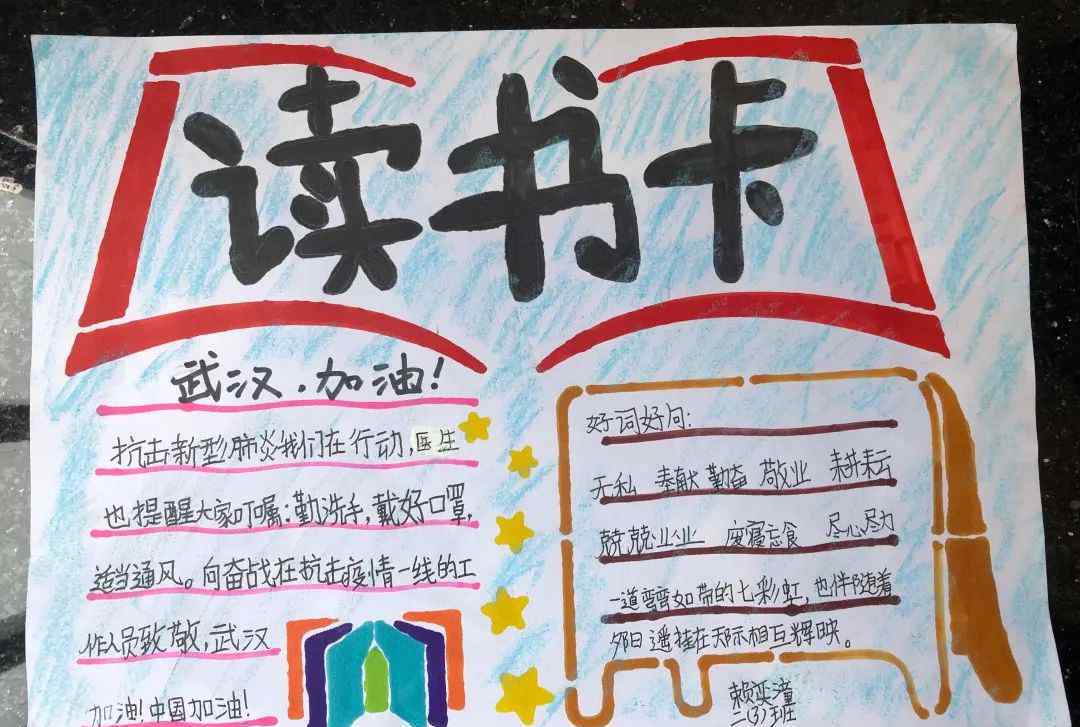 读书卡
武汉.加油!
抗击新型肺炎我们在行动,医生
也提醒大家叮嘱:勤洗手,戴好口罩,
适当通风。向奋战在抗击疫情一线的工
作人员致敬,武汉
加油!中国加油!
好词好句:
无私 奉献 勤奋 敬业 耕耘
兢兢业业 废寝忘食 尽心尽力
一道弯弯如带的七彩虹,也伴随着
夕日遥挂在天际相互辉映。
赖奕潼
二(3)班